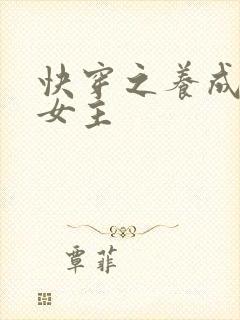 快穿之养成
女主
覃菲